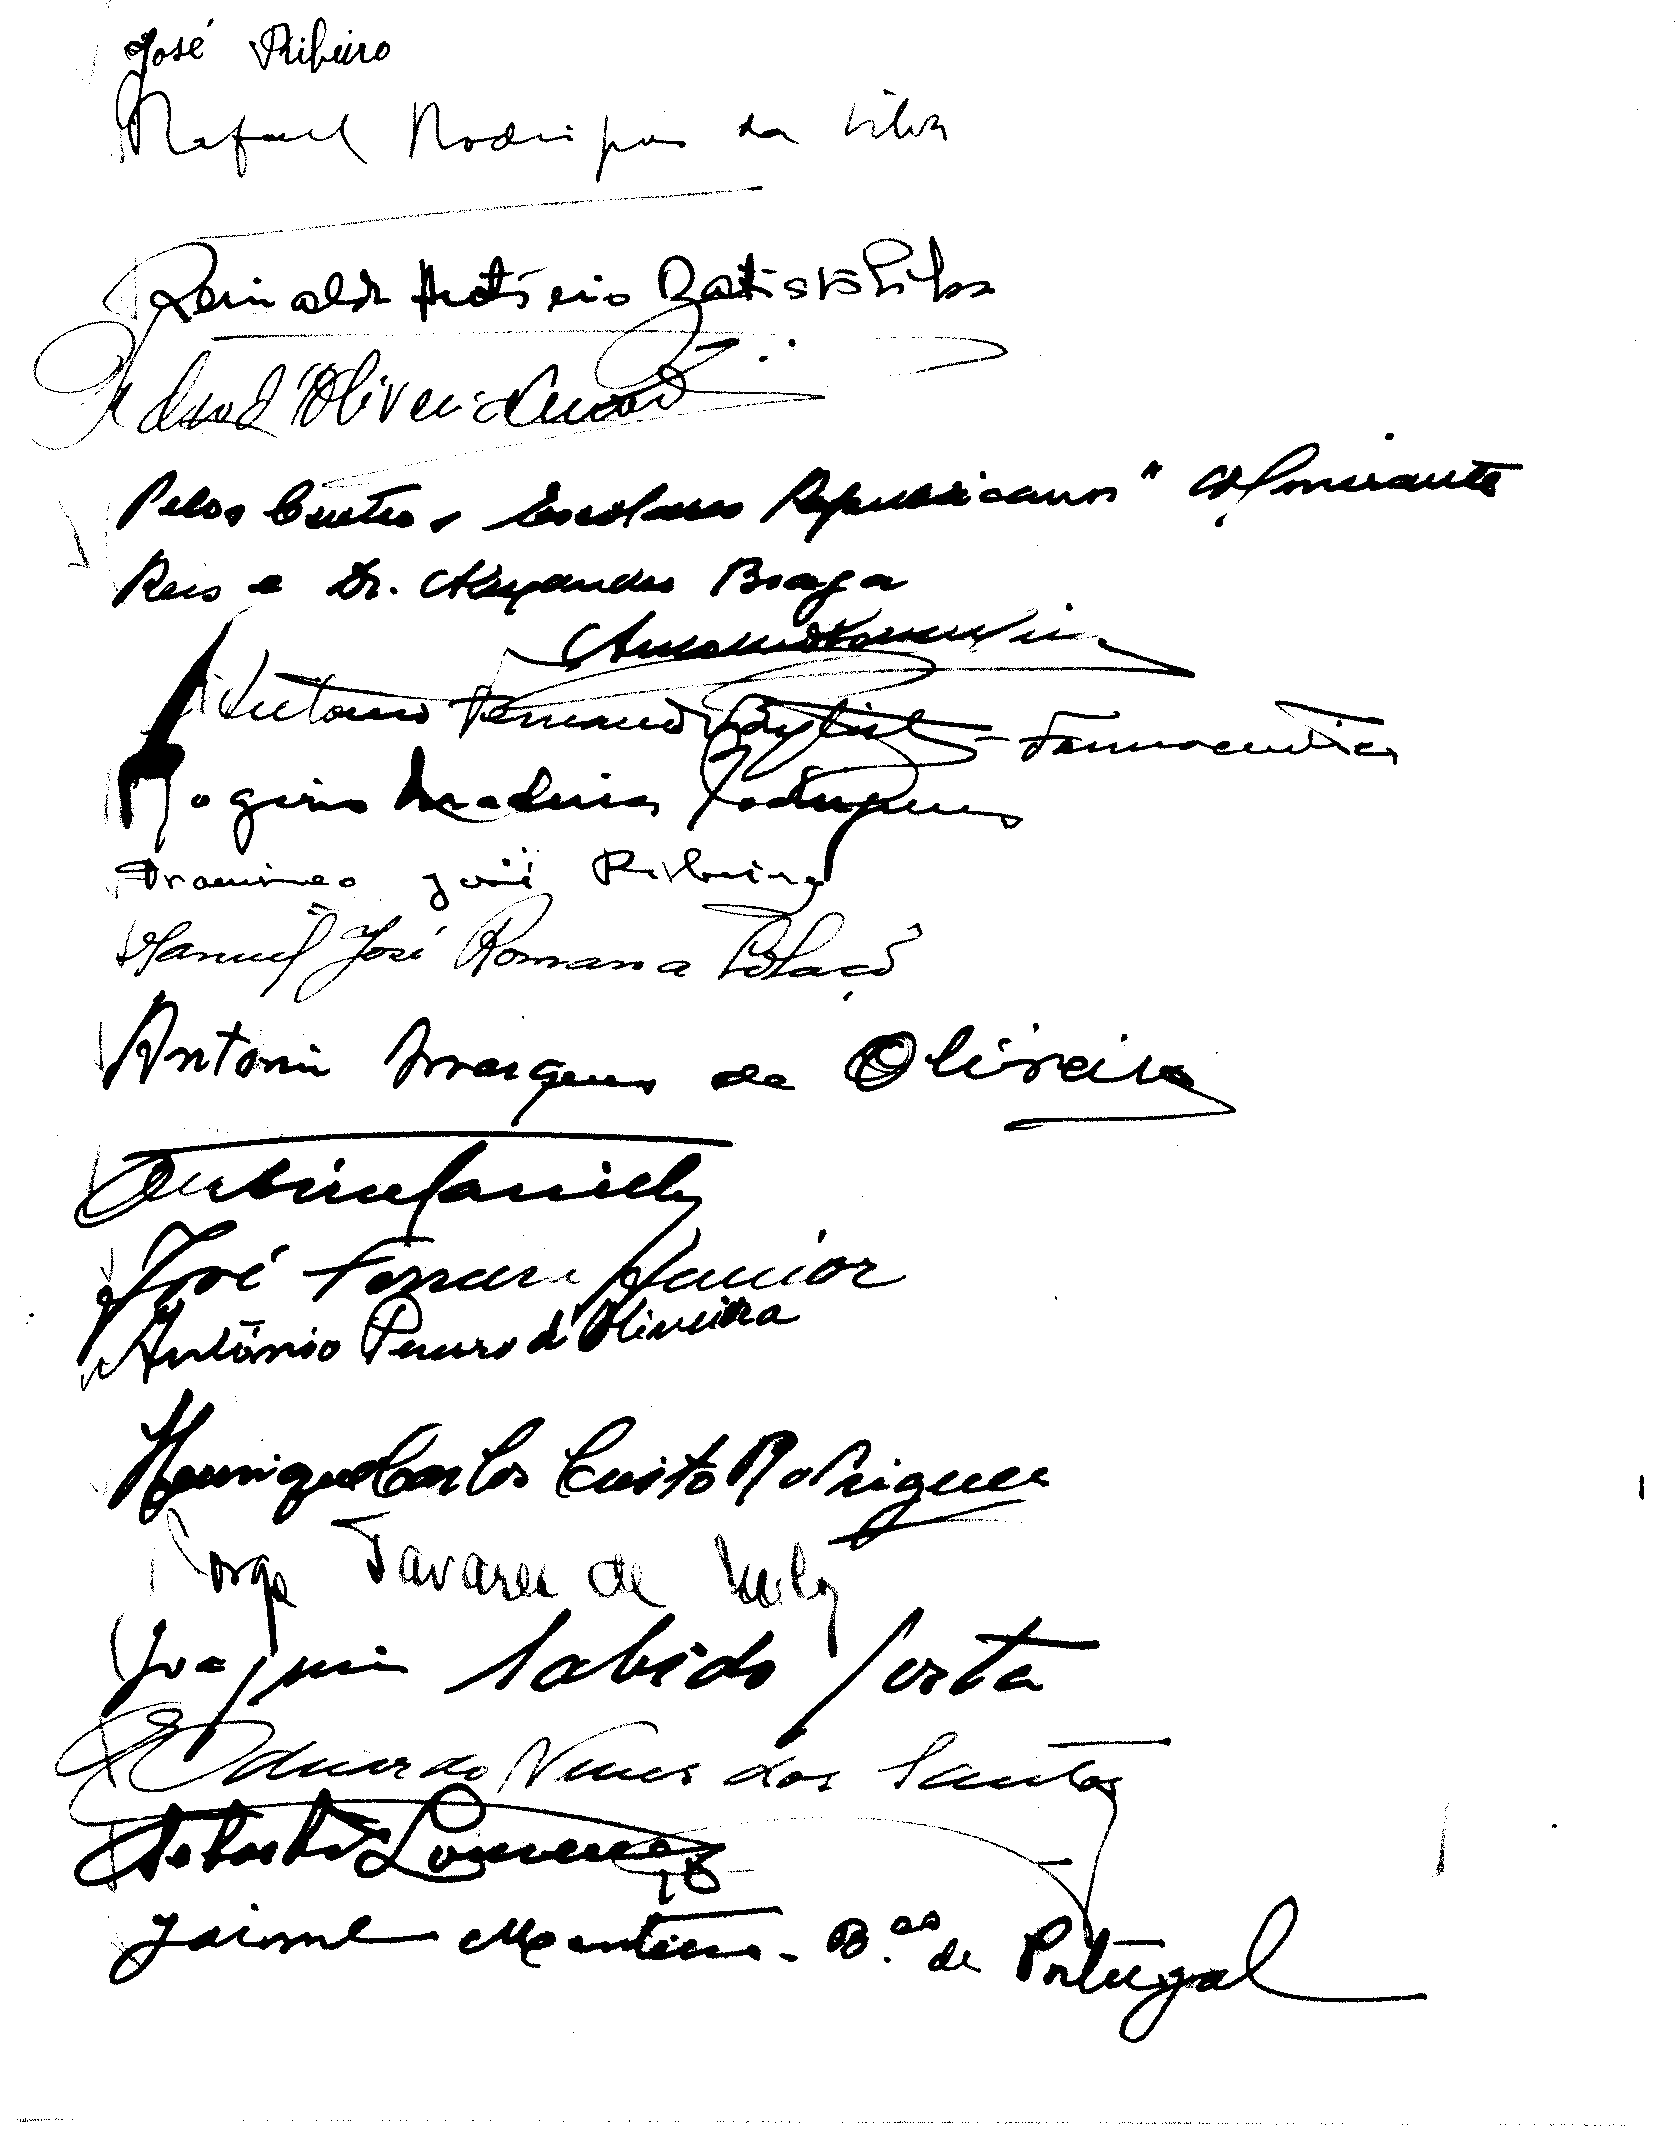 José Ribeiro
Rafael Rodrigues da Silva
Reinaldo António Batista Silva
d'Oliveira
Pelos Centros Escolares Republicanos "Almirante
Reis e Dr. Alexandre Braga
António Fernando Baptista - Farmaceutico
Rogério Madeira Rodrigues
Francisco José Ribeiro
Manuel José Romana Colaço
Antonio Marques de Oliveira
José Ferreira Junior
António Penuro d'Oliveira
Henrique Carlos Cristo Rodrigues
Jorge Tavares de Melo
Joaquim Sabido Costa
Eduardo Nunes dos Santos
Lourenço
Jaime Monteiro - B.co de Portugal